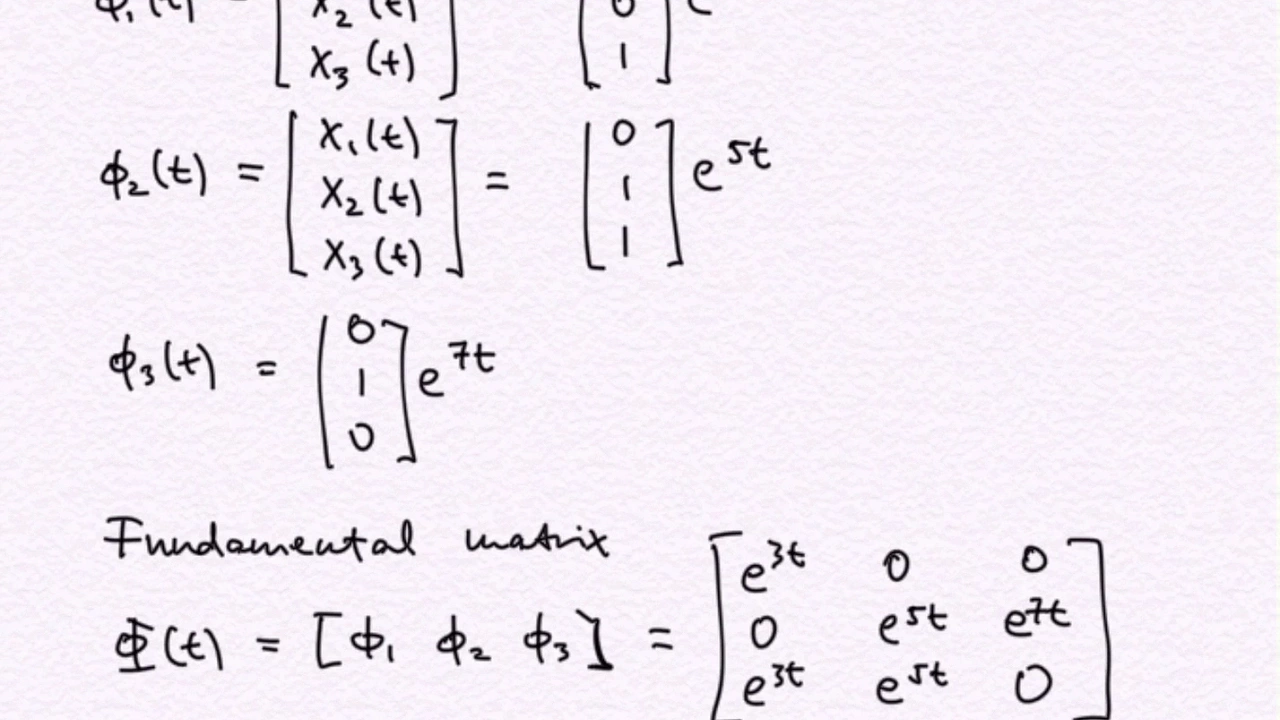 ϕ₁(t) = [x₂(t) x₃(t)] [0 1] e
ϕ₂(t) = [x₁(t) x₂(t) x₃(t)] = [0 1 1] e^5t
ϕ₃(t) = [0 1 0] e^7t
Fundamental matrix
Φ(t) = [ϕ₁ ϕ₂ ϕ₃] = [e^3t 0 0
0 e^5t e^7t
e^3t e^5t 0]